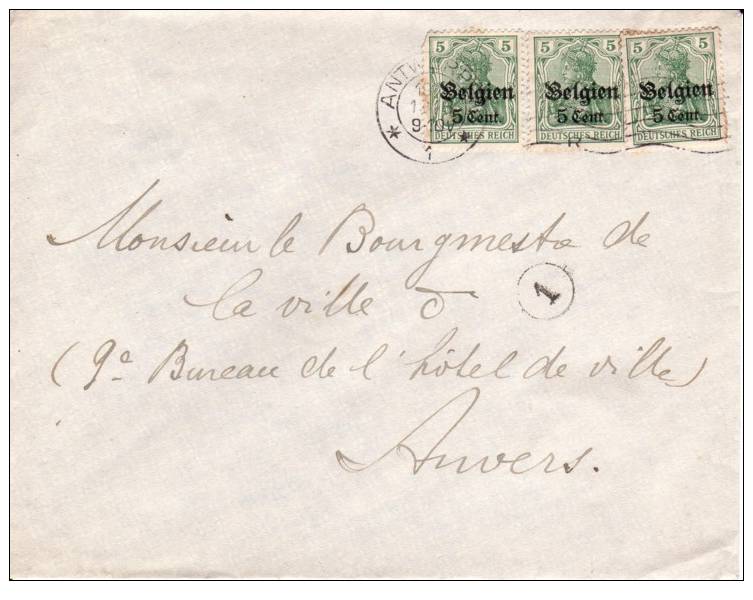 5 5 5 5 5 5
Belgien Belgien Belgien
5 Cent. 5 Cent. 5 Cent.
DEUTSCHES REICH DEUTSCHES REICH DEUTSCHES REICH
* ANTW
9-10
*
1
Monsieur le Bourgmestre de
la ville d
1
(9e Bureau de l'hôtel de ville)
Anvers.